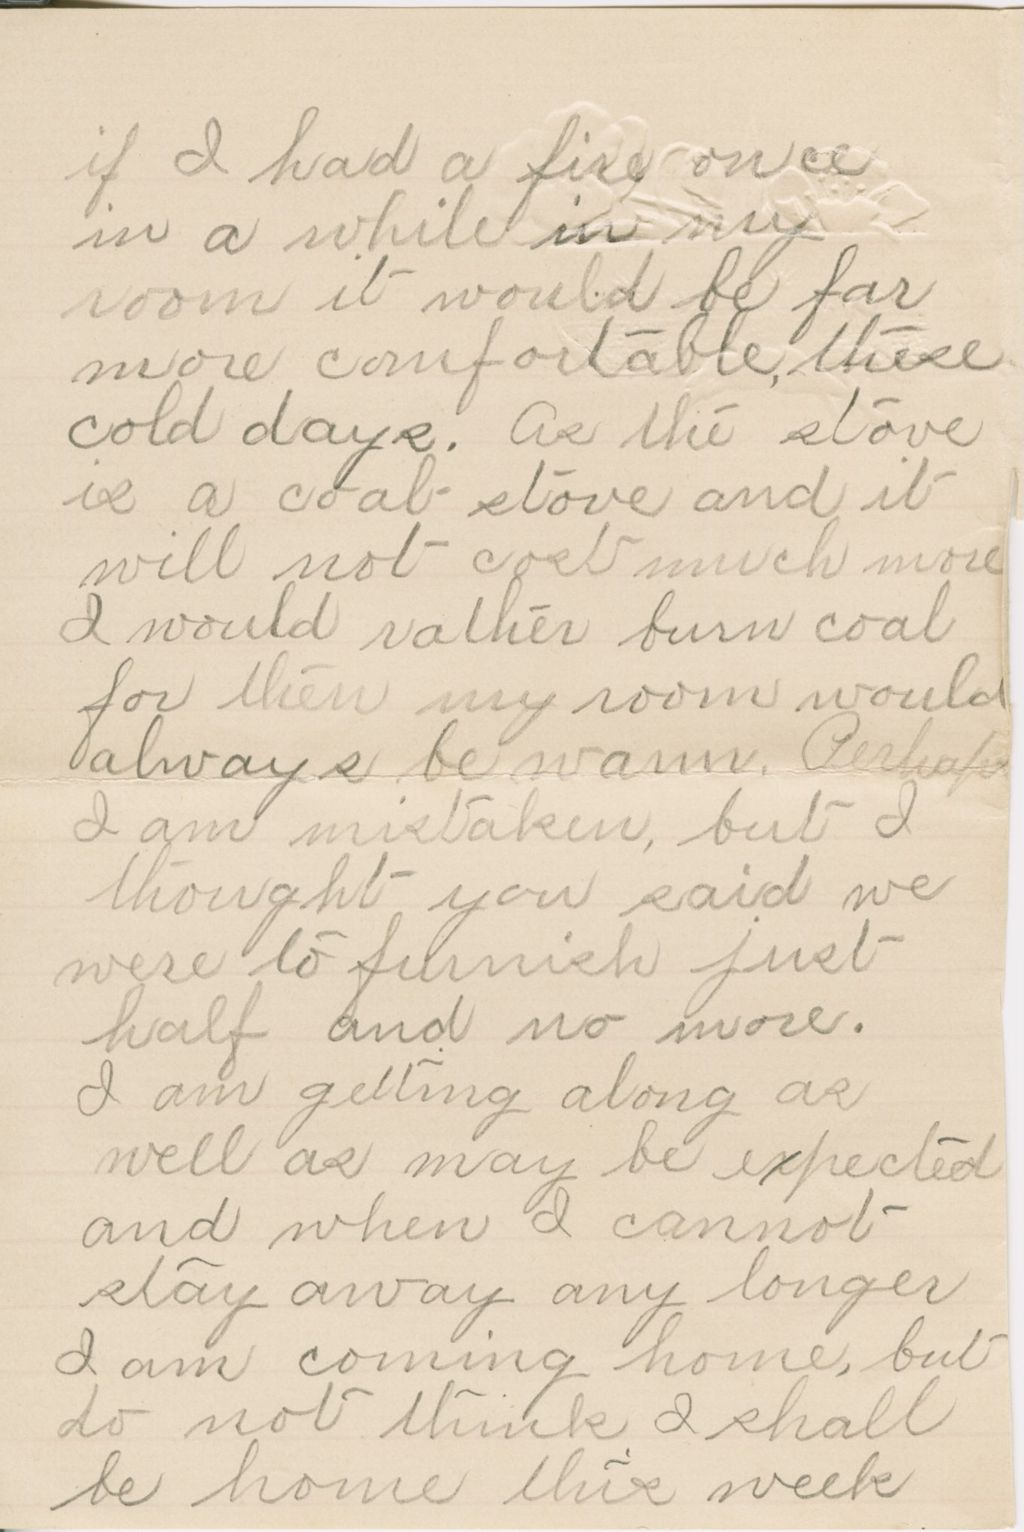 if I had a fire once
in a while in my
room it would be far
more comfortable, these
cold days. As the stove
is a coal stove and it
will not cost much more
I would rather burn coal
for then my room would
always be warm. Perhaps
I am mistaken, but I
thought you said we
were to furnish just
half and no more.
I am getting along as
well as may be expected
and when I cannot
stay away any longer
I am coming home, but
do not think I shall
be home this week